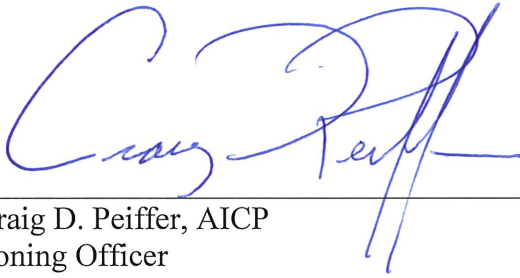 Craig D. Peiff
raig D. Peiffer, AICP
oning Officer